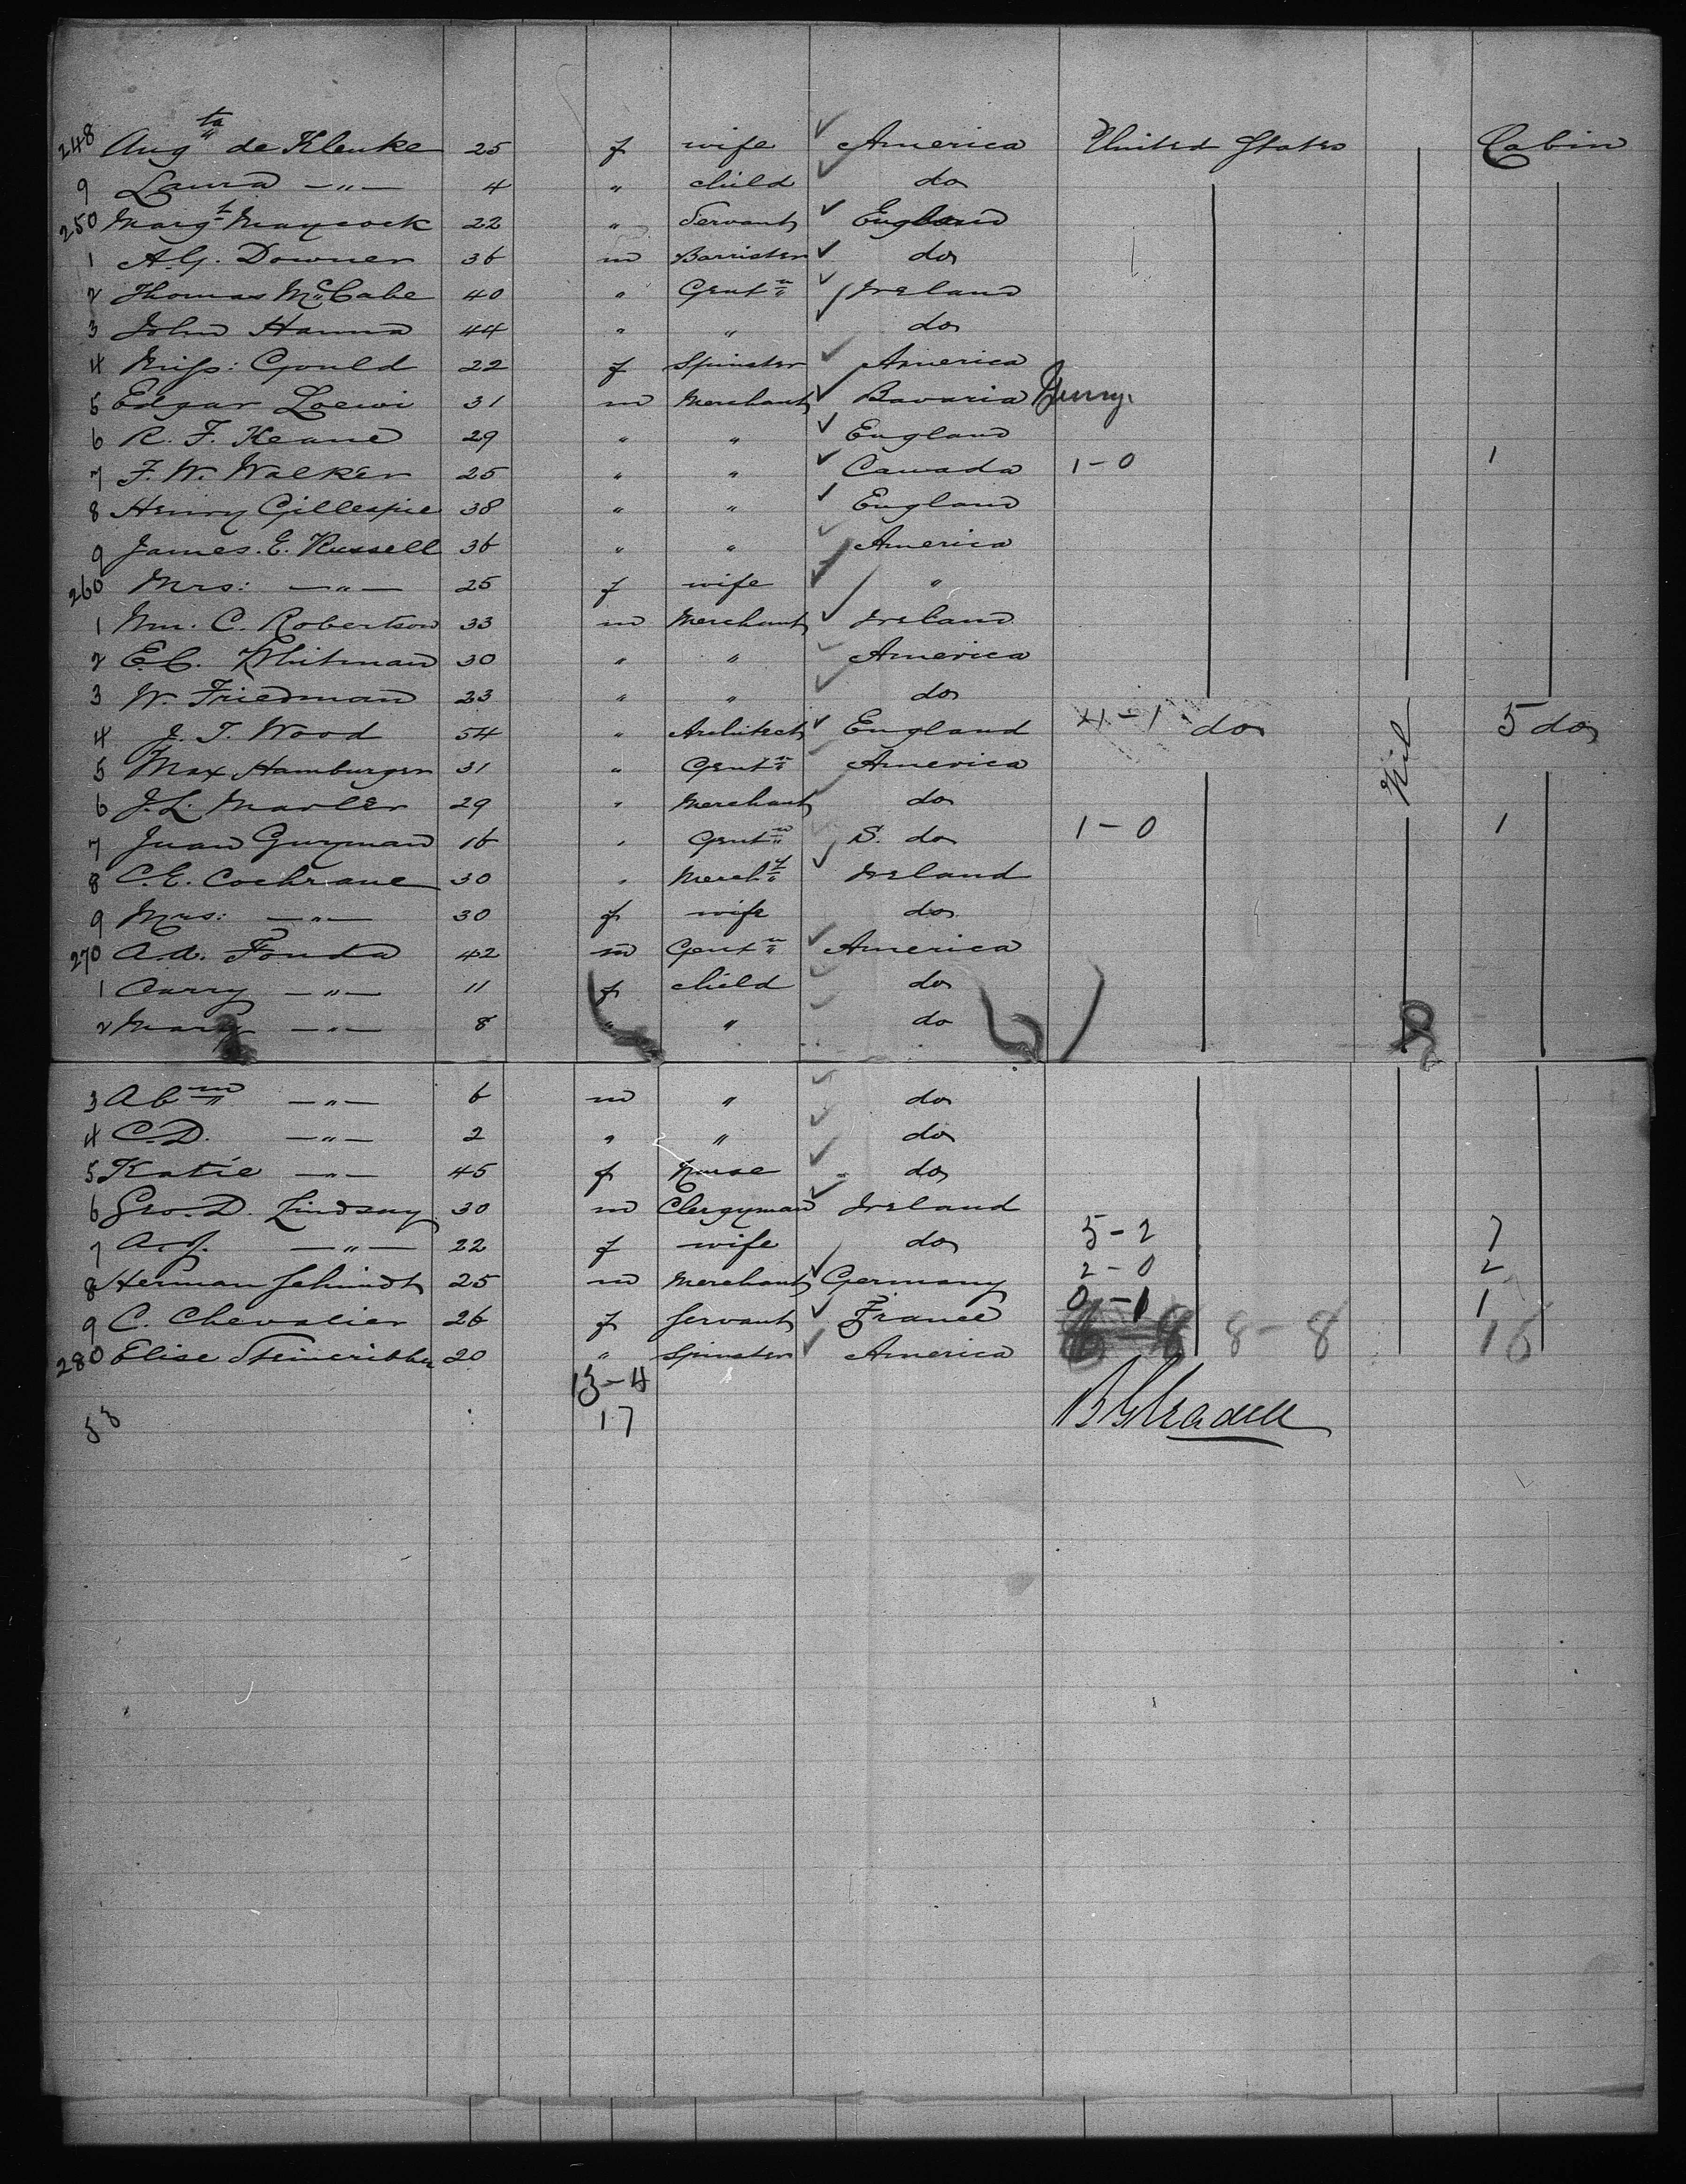 248 Aug ta " de Klenke 25 f wife ✓ America United States Cabin
9 Laura —"— 4 " child ✓ do
250 Marg t Maycock 22 " Servant ✓ England
1 A.G. Downer 36 m Barrister ✓ do
2 Thomas McCabe 40 " Gent n ✓ Ireland
3 John Hanna 44 " " ✓ do
4 Miss: Gould 22 f Spinster ✓ America
5 Edgar Loewi 31 m Merchant ✓ Bavaria
6 R. F. Keane 29 " " ✓ England
7 F. W. Walker 25 " " ✓ Canada 1-0 1
8 Henry Gillespie 38 " " ✓ England
9 James. E. Russell 36 " " ✓ America
260 Mrs: —"— 25 f wife ✓ "
1 Wm. C. Robertson 33 m Merchant ✓ Ireland
2 E.C. Whitman 30 " " ✓ America
3 W. Friedman 23 " " ✓ do
4 J. T. Wood 54 " Architect ✓ England 4-1 do Nil 5 do
5 Max Hamburger 31 " Gent n ✓ America
6 J.L. Marler 29 " Merchant ✓ do
7 Juan Guzman 16 " Gent n ✓ S. do 1-0 1
8 C.E. Cochrane 30 " Merch t ✓ Ireland
9 Mrs: —"— 30 f wife do
270 A.A. Fonda 42 m Gent n ✓ America
1 Carry —"— 11 f child ✓ do
2 Mary —"— 8 " " ✓ do
3 Ab m —"— 6 m " ✓ do
4 C.D. —"— 2 " " ✓ do
5 Katie —"— 45 f Nurse ✓ do
6 Geo. D. Lindsay 30 m Clergyman ✓ Ireland
7 A.J. —"— 22 f wife do 5-2 7
8 Herman Schmidt 25 m Merchant ✓ Germany 2-0 2
9 C. Chevalier 26 f Servant ✓ France 0-1 1
280 Elise 20 " Spinster ✓ America 8-8 16
13-4
17